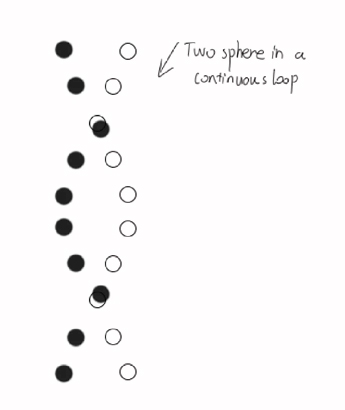 Two sphere in a
continuous loop